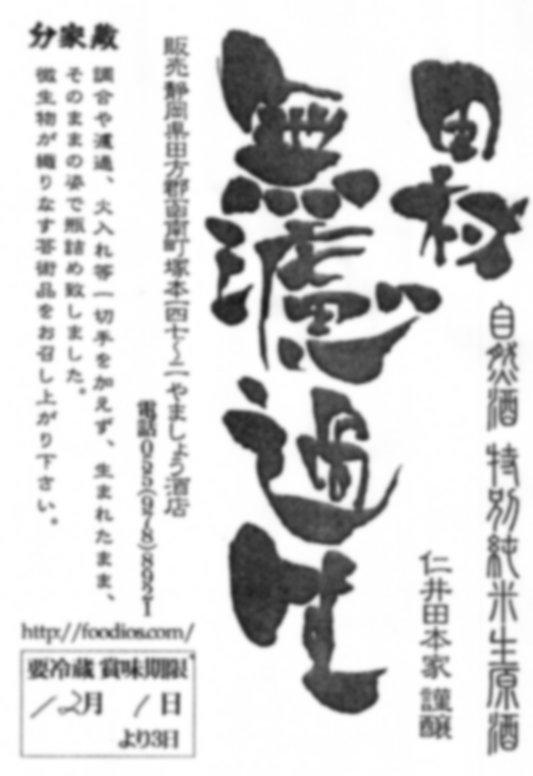 田村
自然酒 特別純米生原酒
仁井田本家 謹醸
無濾過生
販売 静岡県田方郡函南町塚本一四七〜二 やましょう酒店
電話 055(978)8921
分家蔵
調合や濾過、火入れ等一切手を加えず、生まれたまま、
そのままの姿で瓶詰め致しました。
微生物が織りなす芸術品をお召し上がり下さい。
http://foodios.com/
要冷蔵 賞味期限
12月 1日
より3日